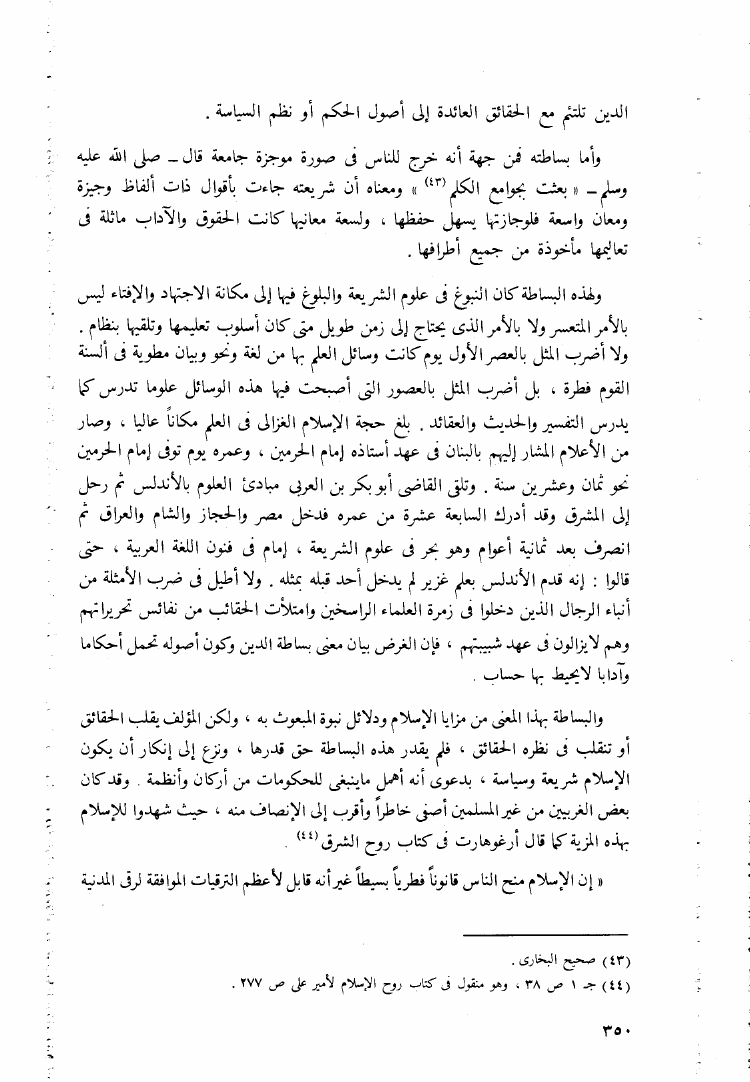 الدين تلتئم مع الحقائق العائدة إلى أصول الحكم أو نظم السياسة .
وأما بساطته فمن جهة أنه خرج للناس فى صورة موجزة جامعة قال ـ صلى الله عليه
وسلم ـ « بعثت بجوامع الكلم (٤٣) » ومعناه أن شريعته جاءت بأقوال ذات ألفاظ وجيزة
ومعان واسعة فلوجازتها يسهل حفظها ، ولسعة معانيها كانت الحقوق والآداب ماثلة فى
تعاليمها مأخوذة من جميع أطرافها .
ولهذه البساطة كان النبوغ فى علوم الشريعة والبلوغ فيها إلى مكانة الاجتهاد والإفتاء ليس
بالأمر المتعسر ولا بالأمر الذى يحتاج إلى زمن طويل متى كان أسلوب تعليمها وتلقيها بنظام .
ولا أضرب المثل بالعصر الأول يوم كانت وسائل العلم بها من لغة ونحو وبيان مطوية فى ألسنة
القوم فطرة ، بل أضرب المثل بالعصور التى أصبحت فيها هذه الوسائل علوما تدرس كما
يدرس التفسير والحديث والعقائد . بلغ حجة الإسلام الغزالى فى العلم مكاناً عاليا ، وصار
من الأعلام المشار إليهم بالبنان فى عهد أستاذه إمام الحرمين ، وعمره يوم توفى إمام الحرمين
نحو ثمان وعشرين سنة . وتلقى القاضى أبو بكر بن العربى مبادئ العلوم بالأندلس ثم رحل
إلى المشرق وقد أدرك السابعة عشرة من عمره فدخل مصر والحجاز والشام والعراق ثم
انصرف بعد ثمانية أعوام وهو بحر فى علوم الشريعة ، إمام فى فنون اللغة العربية ، حتى
قالوا : إنه قدم الأندلس بعلم غزير لم يدخل أحد قبله بمثله . ولا أطيل فى ضرب الأمثلة من
أنباء الرجال الذين دخلوا فى زمرة العلماء الراسخين وامتلأت الحقائب من نفائس تحريراتهم
وهم لايزالون فى عهد شبيبتهم ، فإن الغرض بيان معنى بساطة الدين وكون أصوله تحمل أحكاما
وآدابا لايحيط بها حساب .
والبساطة بهذا المعنى من مزايا الإسلام ودلائل نبوة المبعوث به ، ولكن المؤلف يقلب الحقائق
أو تنقلب فى نظره الحقائق ، فلم يقدر هذه البساطة حق قدرها ، ونزع إلى إنكار أن يكون
الإسلام شريعة وسياسة ، بدعوى أنه أهمل ماينبغى للحكومات من أركان وأنظمة . وقد كان
بعض الغربيين من غير المسلمين أصفى خاطراً وأقرب إلى الإنصاف منه ، حيث شهدوا للإسلام
بهذه المزية كما قال أرغوهارت فى كتاب روح الشرق (٤٤) .
« إن الإسلام منح الناس قانوناً فطرياً بسيطاً غير أنه قابل لأعظم الترقيات الموافقة لرقى المدنية
(٤٣) صحيح البخارى .
(٤٤) جـ ١ ص ٣٨ ، وهو منقول فى كتاب روح الإسلام لأمير على ص ٢٧٧ .
٣٥٠